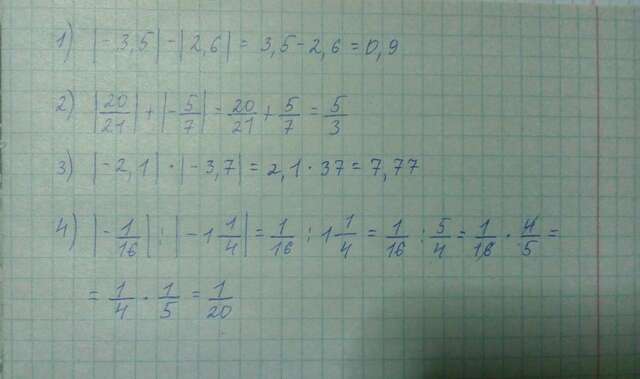 1) |-3,5| - |2,6| = 3,5 - 2,6 = 0,9
2) |20/21| + |-5/7| = 20/21 + 5/7 = 5/3
3) |-2,1| · |-3,7| = 2,1 · 37 = 7,77
4) |-1/16| : |-1 1/4| = 1/16 : 1 1/4 = 1/16 : 5/4 = 1/16 · 4/5 =
= 1/4 · 1/5 = 1/20